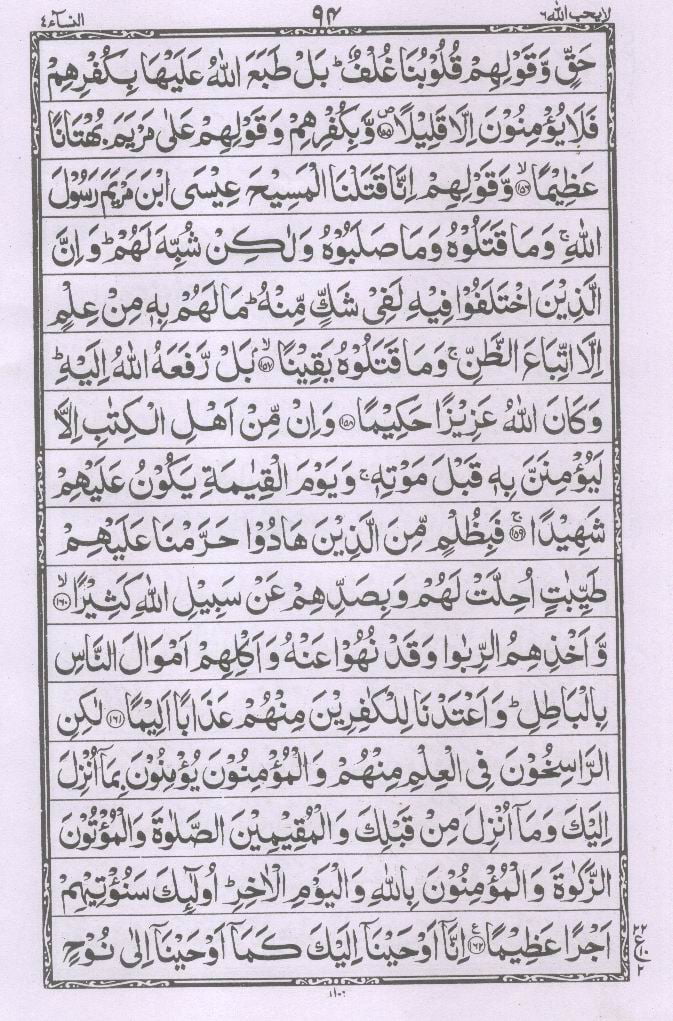 لایحب الله ٦ ٩٤ النسآء ٤
حَقٍّ وَّقَوْلِهِمْ قُلُوْبُنَا غُلْفٌ ؕ بَلْ طَبَعَ اللّٰهُ عَلَیْهَا بِكُفْرِهِمْ
فَلَا یُؤْمِنُوْنَ اِلَّا قَلِیْلًا ۪﴿۱۵۵﴾ وَّبِكُفْرِهِمْ وَقَوْلِهِمْ عَلٰی مَرْیَمَ بُهْتَانًا
عَظِیْمًا ۙ﴿۱۵۶﴾ وَّقَوْلِهِمْ اِنَّا قَتَلْنَا الْمَسِیْحَ عِیْسَی ابْنَ مَرْیَمَ رَسُوْلَ
اللّٰهِ ۚ وَمَا قَتَلُوْهُ وَمَا صَلَبُوْهُ وَلٰكِنْ شُبِّهَ لَهُمْ ؕ وَاِنَّ
الَّذِیْنَ اخْتَلَفُوْا فِیْهِ لَفِیْ شَكٍّ مِّنْهُ ؕ مَا لَهُمْ بِهٖ مِنْ عِلْمٍ
اِلَّا اتِّبَاعَ الظَّنِّ ۚ وَمَا قَتَلُوْهُ یَقِیْنًا ۙ﴿۱۵۷﴾ بَلْ رَّفَعَهُ اللّٰهُ اِلَیْهِ ؕ
وَكَانَ اللّٰهُ عَزِیْزًا حَكِیْمًا ﴿۱۵۸﴾ وَاِنْ مِّنْ اَهْلِ الْكِتٰبِ اِلَّا
لَیُؤْمِنَنَّ بِهٖ قَبْلَ مَوْتِهٖ ۚ وَیَوْمَ الْقِیٰمَةِ یَكُوْنُ عَلَیْهِمْ
شَهِیْدًا ۚ﴿۱۵۹﴾ فَبِظُلْمٍ مِّنَ الَّذِیْنَ هَادُوْا حَرَّمْنَا عَلَیْهِمْ
طَیِّبٰتٍ اُحِلَّتْ لَهُمْ وَبِصَدِّهِمْ عَنْ سَبِیْلِ اللّٰهِ كَثِیْرًا ۙ﴿۱۶۰﴾
وَّاَخْذِهِمُ الرِّبٰوا وَقَدْ نُهُوْا عَنْهُ وَاَكْلِهِمْ اَمْوَالَ النَّاسِ
بِالْبَاطِلِ ؕ وَاَعْتَدْنَا لِلْكٰفِرِیْنَ مِنْهُمْ عَذَابًا اَلِیْمًا ﴿۱۶۱﴾ لٰكِنِ
الرّٰسِخُوْنَ فِی الْعِلْمِ مِنْهُمْ وَالْمُؤْمِنُوْنَ یُؤْمِنُوْنَ بِمَاۤ اُنْزِلَ
اِلَیْكَ وَمَاۤ اُنْزِلَ مِنْ قَبْلِكَ وَالْمُقِیْمِیْنَ الصَّلٰوةَ وَالْمُؤْتُوْنَ
الزَّكٰوةَ وَالْمُؤْمِنُوْنَ بِاللّٰهِ وَالْیَوْمِ الْاٰخِرِ ؕ اُولٰٓئِكَ سَنُؤْتِیْهِمْ
اَجْرًا عَظِیْمًا ﴿۱۶۲﴾ع اِنَّاۤ اَوْحَیْنَاۤ اِلَیْكَ كَمَاۤ اَوْحَیْنَاۤ اِلٰی نُوْحٍ
۲۲
ع ۱۰
۲